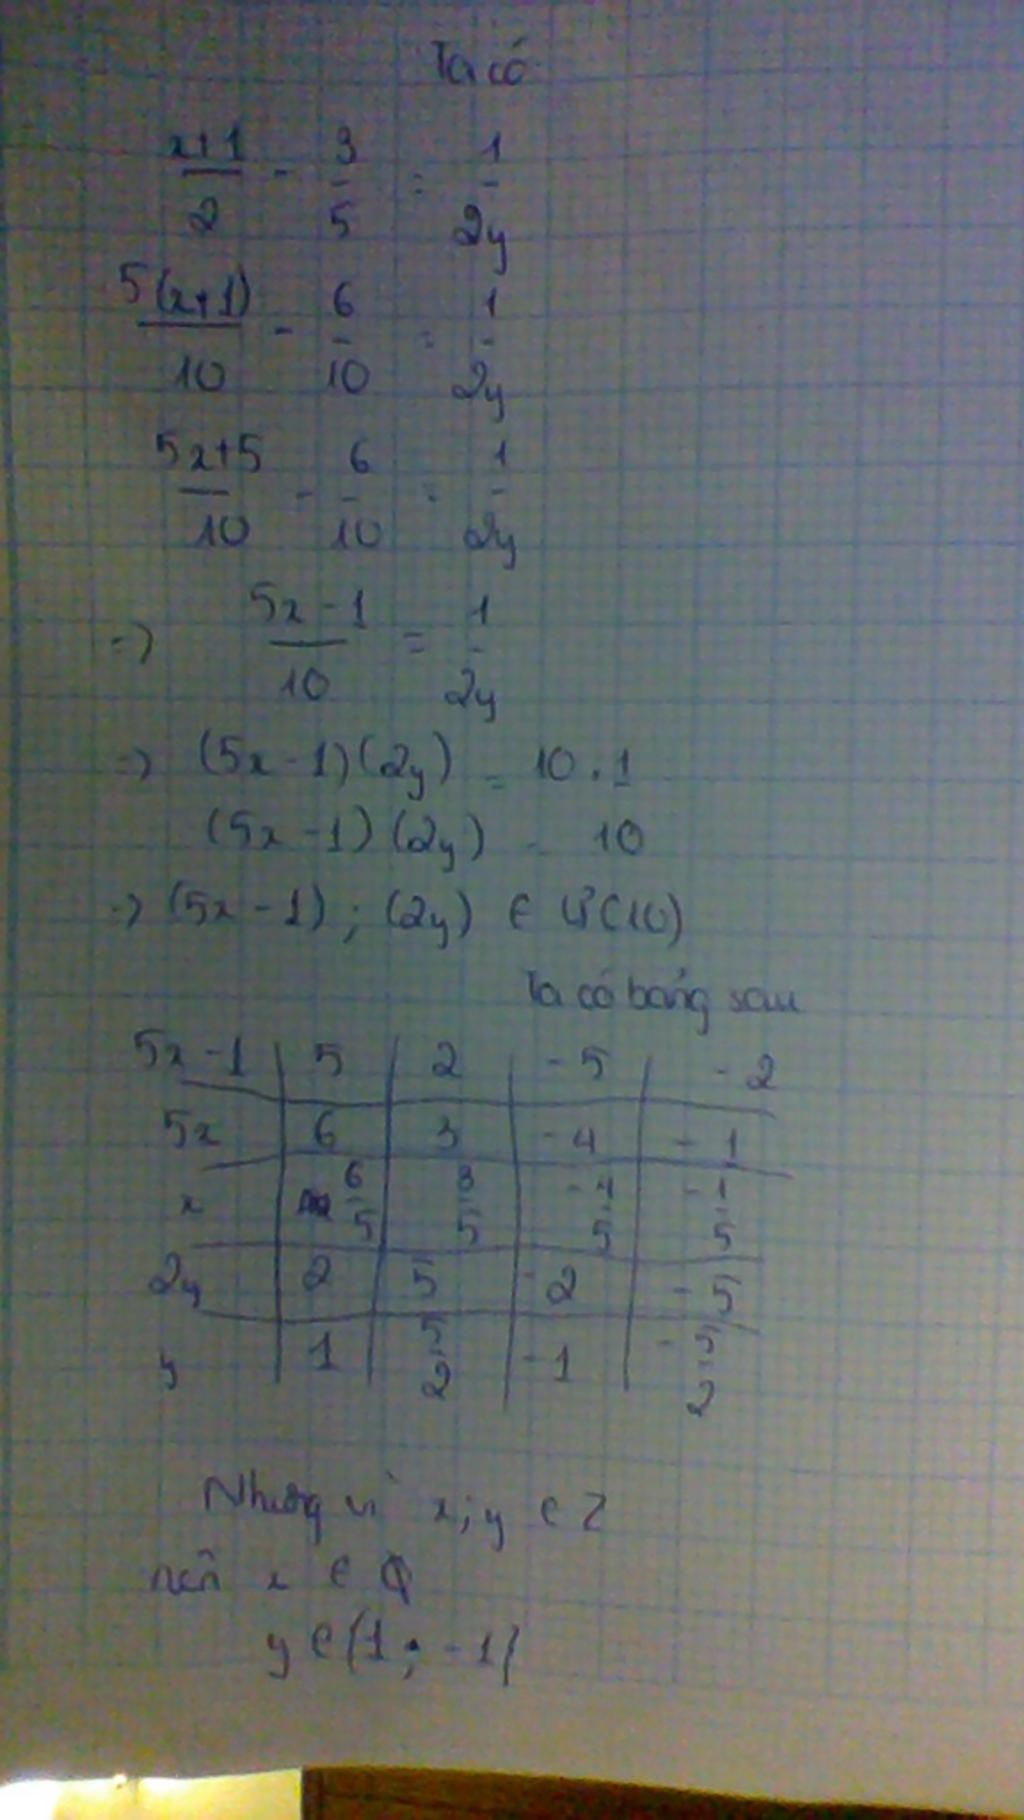 Ta có
x+1/2 - 3/5 = 1/2y
5(x+1)/10 - 6/10 = 1/2y
5x+5/10 - 6/10 = 1/2y
=> 5x-1/10 = 1/2y
=> (5x-1)(2y) = 10.1
(5x-1)(2y) = 10
=> (5x-1); (2y) ∈ Ư(10)
Ta có bảng sau
5x-1 | 5 | 2 | -5 | -2
5x | 6 | 3 | -4 | -1
x | 6/5 | 3/5 | -4/5 | -1/5
2y | 2 | 5 | -2 | -5
y | 1 | 5/2 | -1 | -5/2
Nhưng vì x;y ∈ Z
nên x ∈ Φ
y ∈ {1; -1}